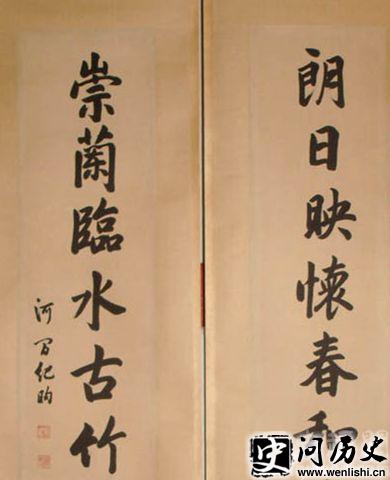 朗日映懷春
崇蘭臨水古竹
河間紀昀
问历史
www.wenlishi.cn